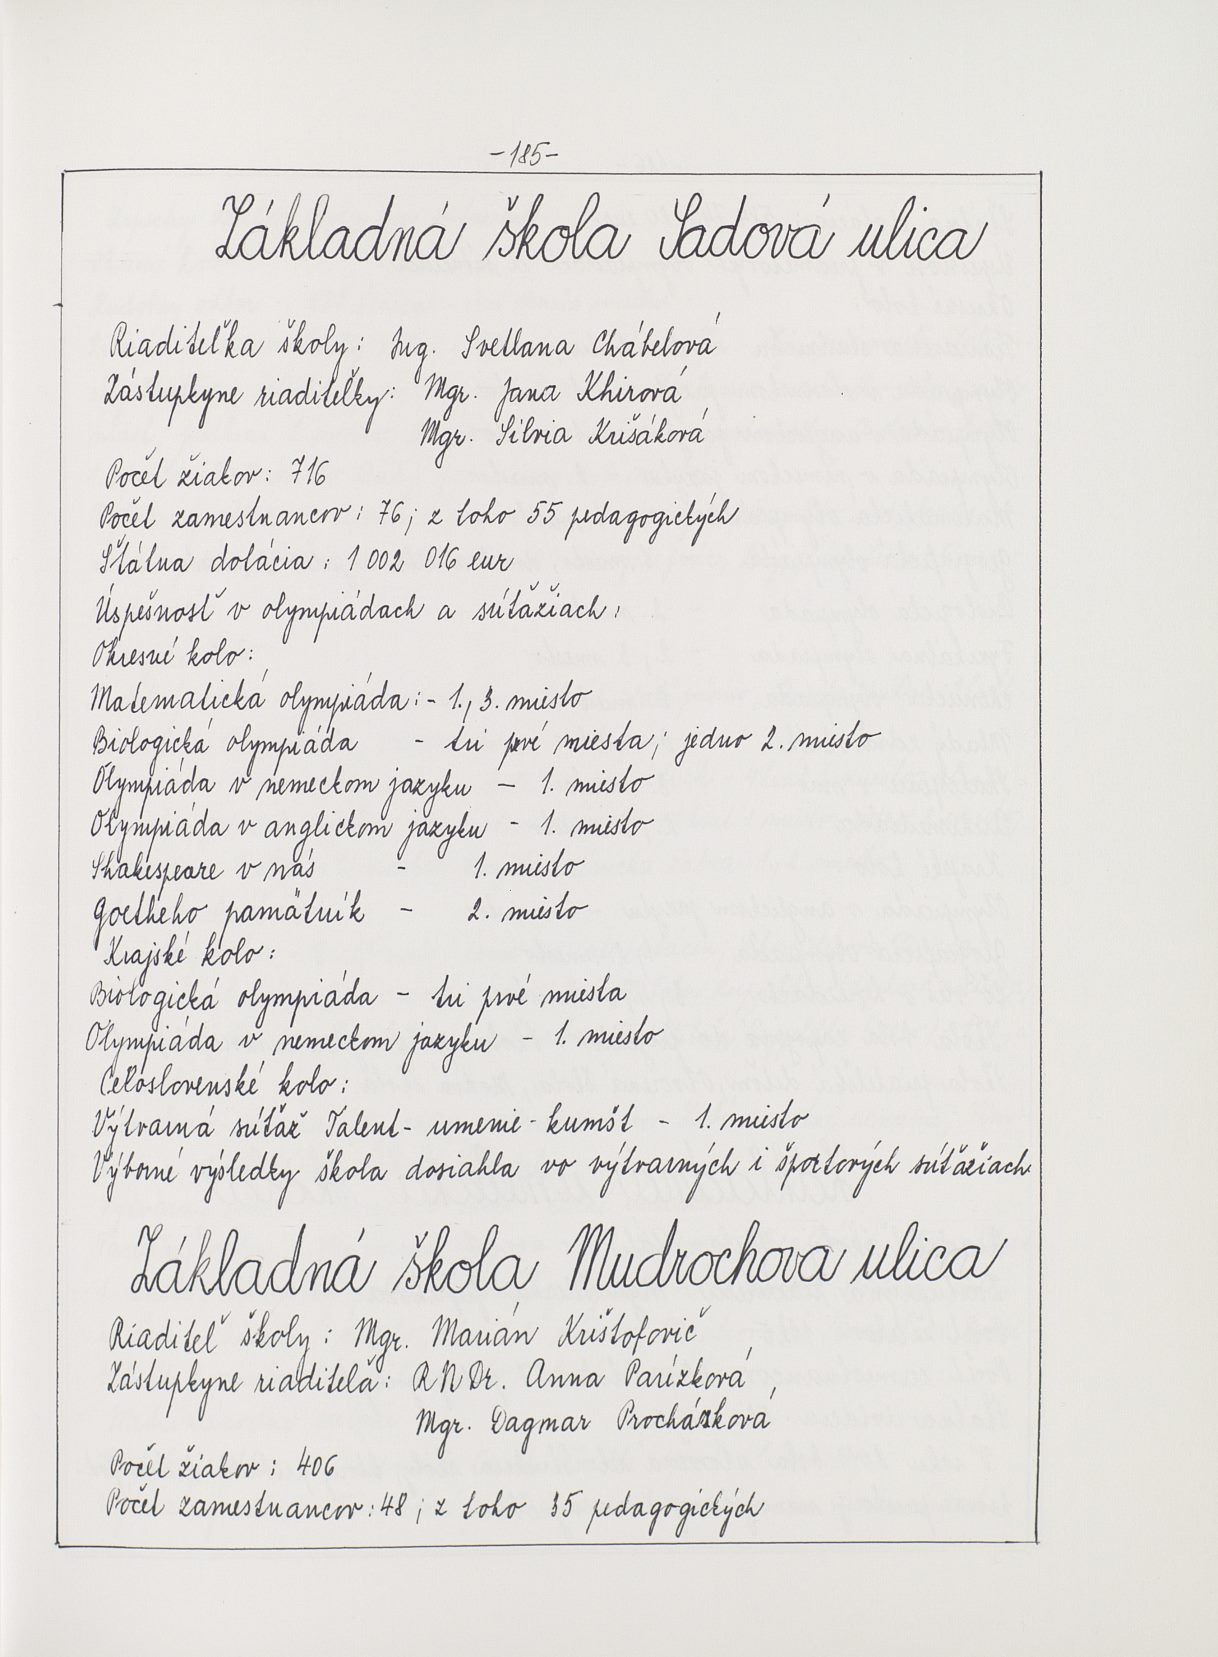 -185-
Základná škola Sadová ulica
Riaditeľka školy: Ing. Svetlana Chábelová
Zástupkyne riaditeľky: Mgr. Jana Khirová
Mgr. Silvia Krišáková
Počet žiakov: 716
Počet zamestnancov: 76; z toho 55 pedagogických
Štátna dotácia: 1 002 016 eur
Úspešnosť v olympiádach a súťažiach:
Okresné kolo:
Matematická olympiáda: - 1., 3. miesto
Biologická olympiáda - tri prvé miesta; jedno 2. miesto
Olympiáda v nemeckom jazyku - 1. miesto
Olympiáda v anglickom jazyku - 1. miesto
Shakespeare v nás - 1. miesto
Goetheho pamätník - 2. miesto
Krajské kolo:
Biologická olympiáda - tri prvé miesta
Olympiáda v nemeckom jazyku - 1. miesto
Celoslovenské kolo:
Výtvarná súťaž Talent - umenie - kumšt - 1. miesto
Výborné výsledky škola dosiahla vo výtvarných i športových súťažiach
Základná škola Mudrochova ulica
Riaditeľ školy: Mgr. Marián Krištofovič
Zástupkyne riaditeľa: RNDr. Anna Parízková,
Mgr. Dagmar Procházková
Počet žiakov: 406
Počet zamestnancov: 48; z toho 35 pedagogických